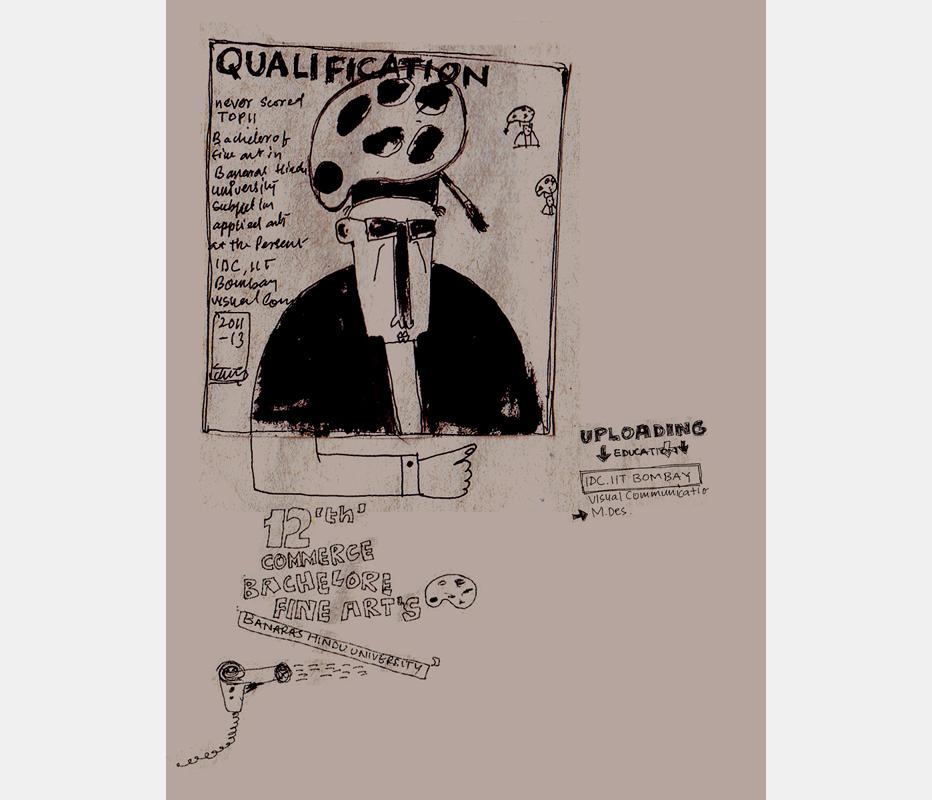 QUALIFICATION
never scored
TOP11
Bachelor of
fine art in
Banaras Hindu
university
subject in
applied art
at the Persent
IDC, IIT
Bombay
visual Com
2011
-13
UPLOADING
EDUCATION
IDC.IIT BOMBAY
Visual Communicatio
M.Des.
12'th'
COMMERCE
BACHELORE
FINE ART'S
BANARAS HINDU UNIVERSITY